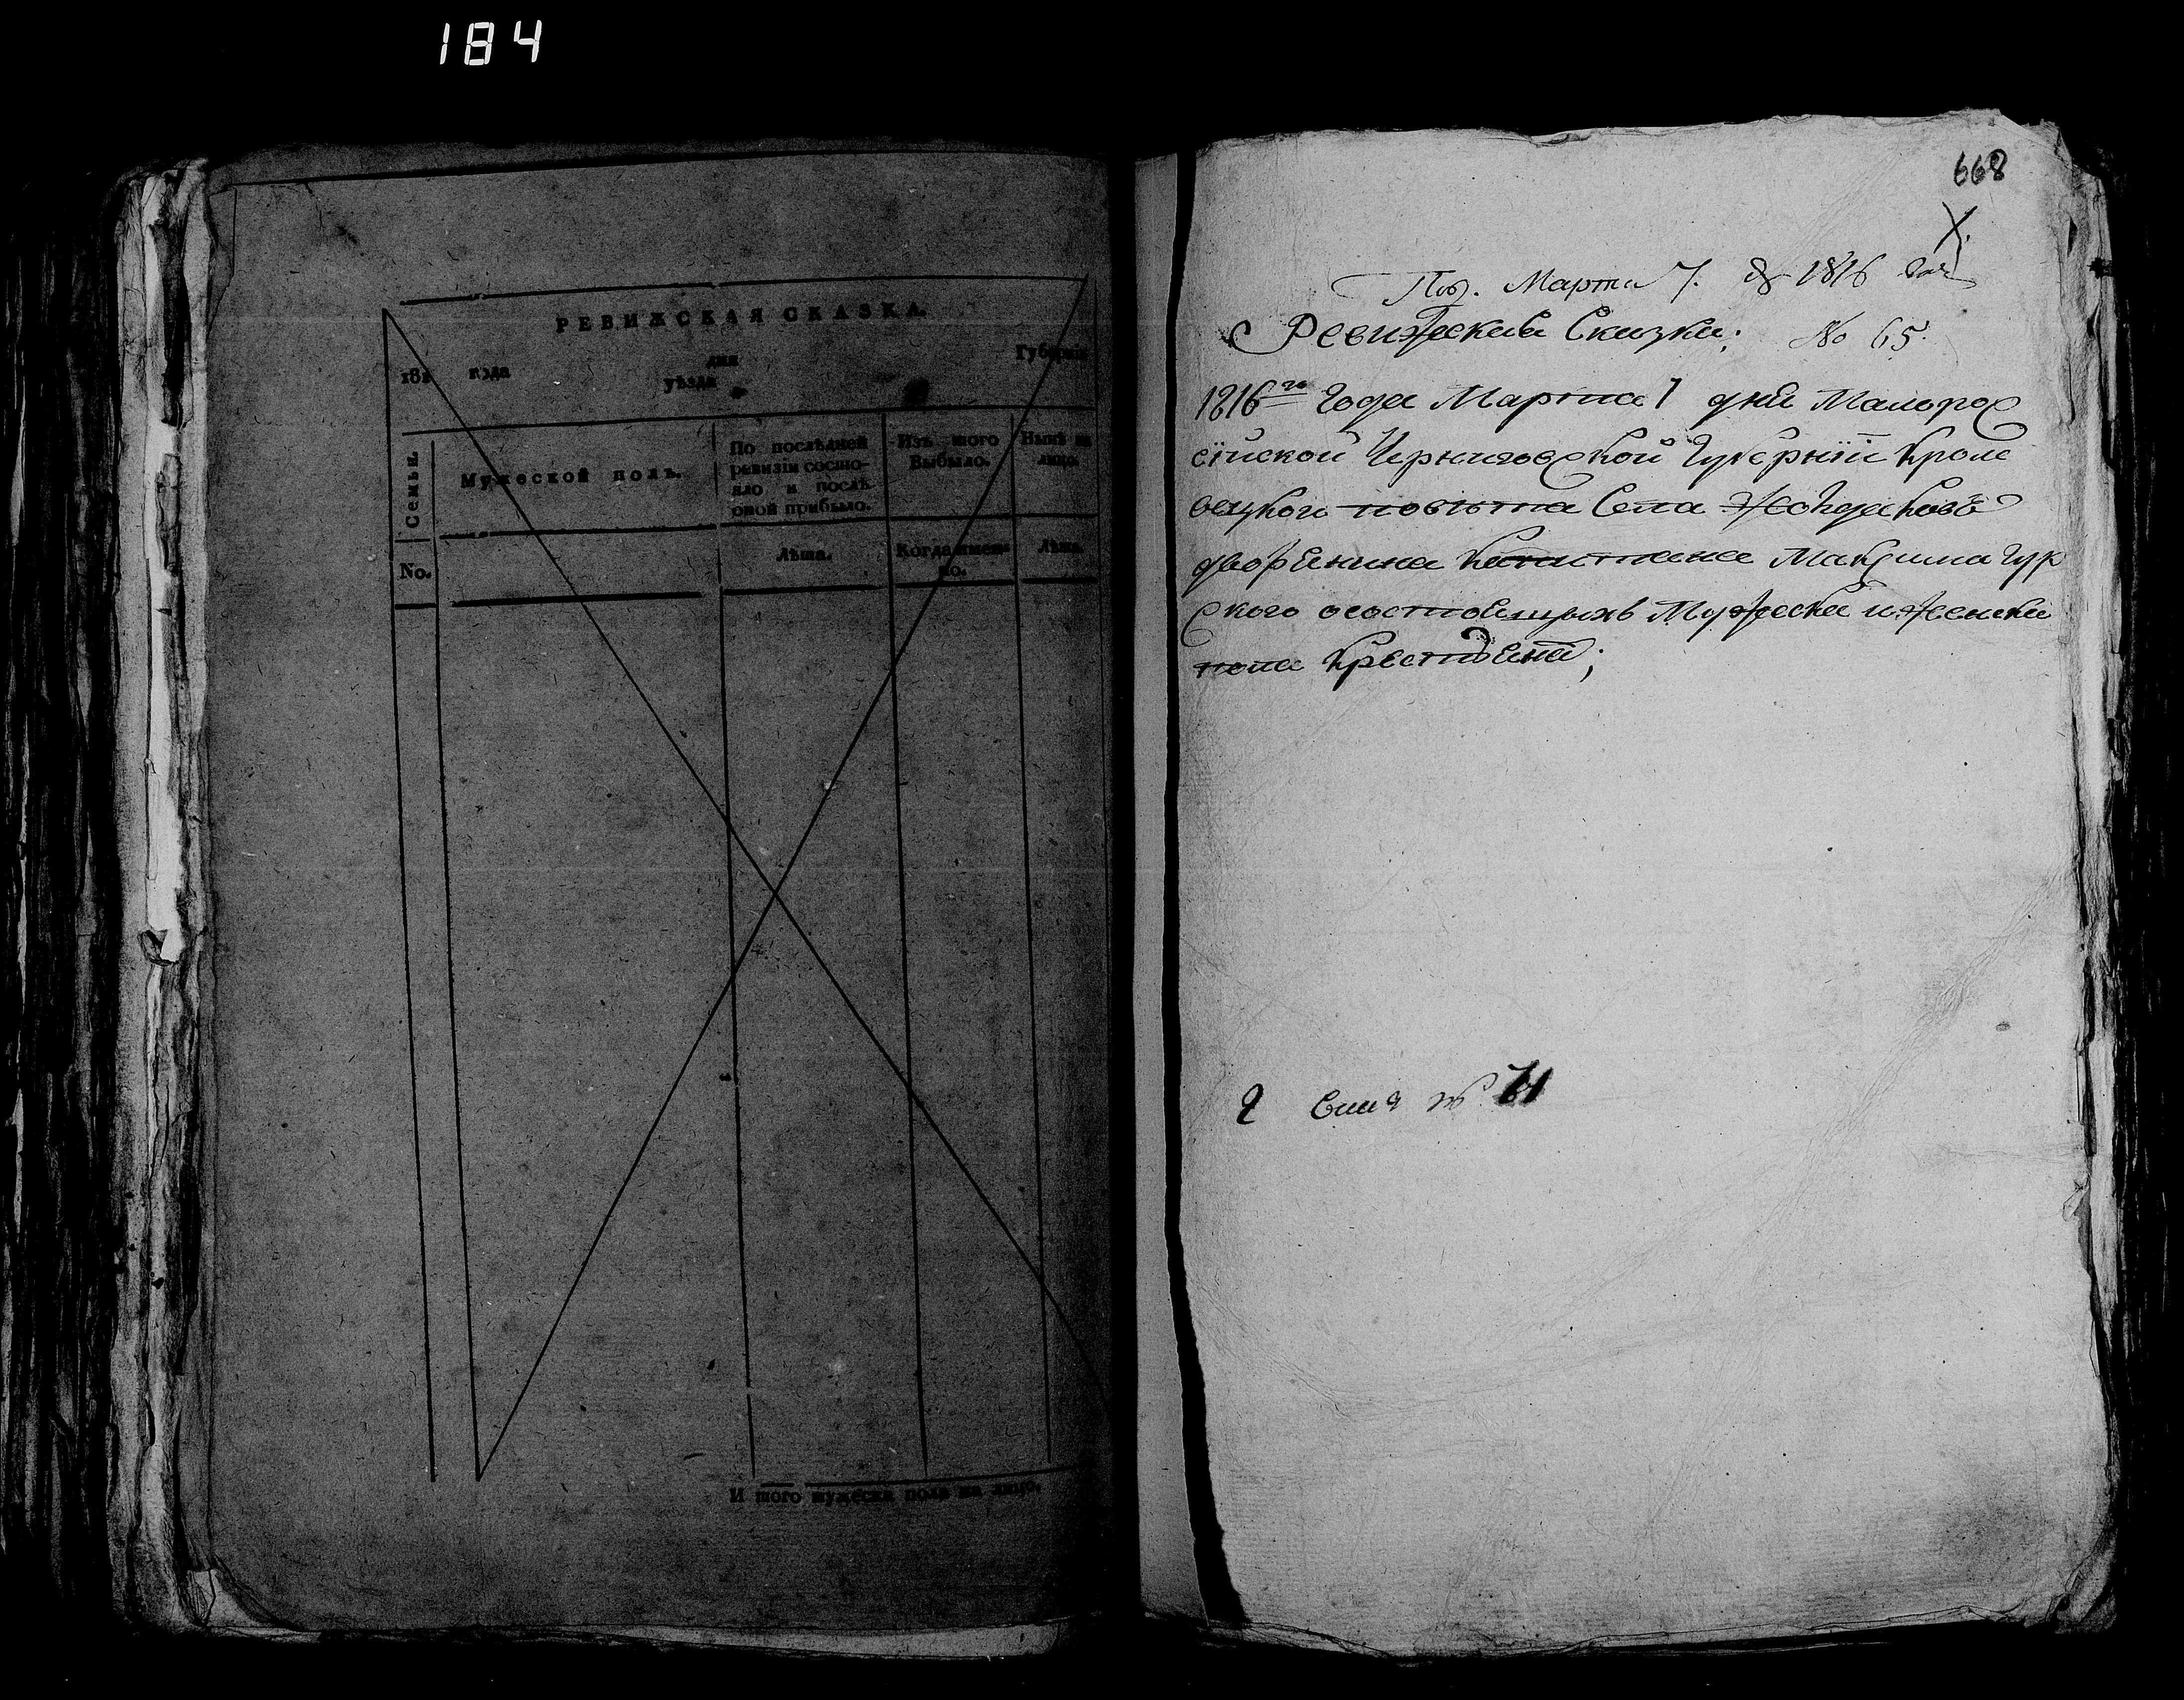 184
РЕВИЖСКАЯ СКАЗКА.
181 года дня Губерніи
уѣзда
Семьи.
Мужеской полъ.
По послѣдней
ревизіи состо-
яло и послѣ
оной прибыло.
Изъ того
Выбыло.
Нынѣ на
лицо.
No.
Лѣта.
Когда имен-
но.
Лѣта.
И того мужеска пола на лицо.
668
X.
Марта 7. 1816 года
Ревижская Сказка; No 65.
1816го Года Марта 7 дня Малорос
сійской Черниговской Губерніи Кроле
вецкого повѣта Села
дворянина Капитана Максима Гур
ского осостоящихъ Мужеска и женска
пола Крестьянъ;